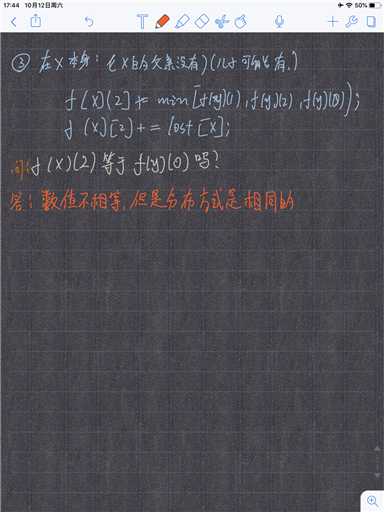 17:44 10月12日周六
50%
③ 在X本身：(X的父亲没有)(儿子可能有)
f(x)(2) += min[f(y)(1), f(y)(2), f(y)(0)];
f(x)[2] += cost[x];
问：f(x)(2)等于f(y)(0)吗？
答：数值不相等，但是分布方式是相同的